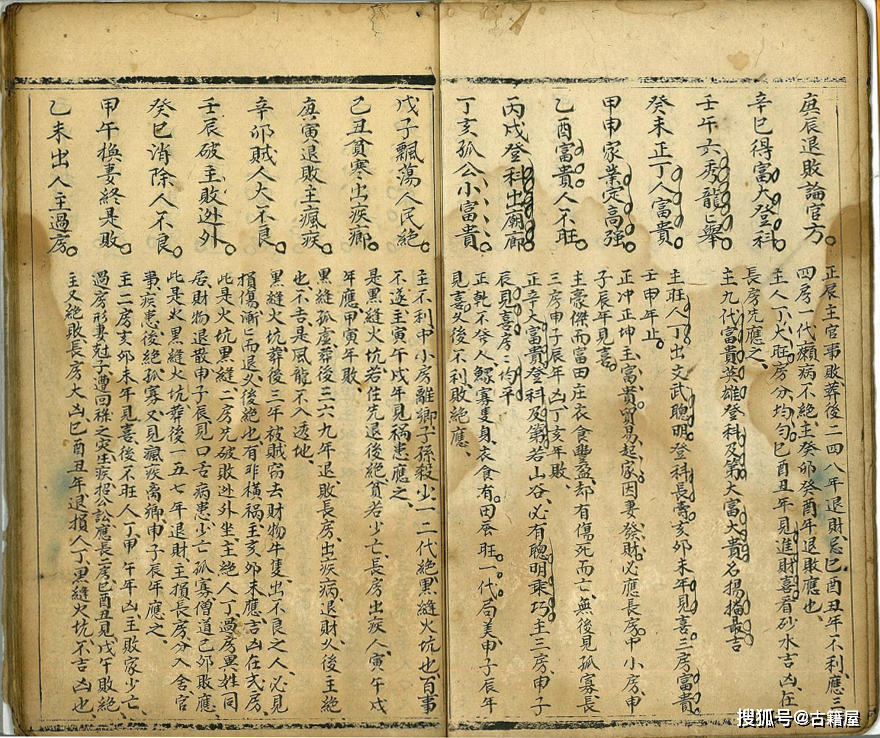 庚辰退敗論官方
辛巳得富大登科
壬午六秀龍〻舉
癸未正丁人富貴
甲申家業定高強
乙酉富貴人不旺
丙戌登科出廟廊
丁亥孤公小富貴
正辰主官事敗葬後二四八年退財忌巳酉丑年不利應三
四房一代癩病不絕主癸卯癸酉年退敗應也
主人丁大旺房分均勻巳酉丑年見進財喜看砂水吉凶在
長房先應之
主九代富貴英雄登科及第大富大貴名揚揚最吉
主旺人丁出文武聰明登科長壽亥卯未年見喜三房富貴
壬申年止
正冲正坤主富貴貿易起家因妻發財必應長房中小房申
子辰年見喜
主豪傑而富田庄衣食豐盈却有傷死而亡無後見孤寡長
三房申子辰年凶丁亥年敗
正辛大富貴登科及第若山谷必有聰明乘巧主三房申子
辰見喜房〻均平
正乾不發人鰥寡隻身衣食有田蚕旺一代局美申子辰年
見喜久後不利敗絕應
戊子飄蕩人民絕
己丑貧寒出疾癆
庚寅退敗主瘋疾
辛卯賊人大不良
壬辰破主敗逃外
癸巳消除人不良
甲午換妻終是敗
乙未出人主過房
主不利中小房離鄉子孫殺少一二代絕黑縫火坑也百事
不遂主寅午戌年見禍患應之
是黑縫火坑若住先退後絕貧若少亡長房出疾人寅午戌
年應甲寅年敗
黑縫孤虛葬後三六九年退敗長房出疾病退財久後主絕
也不吉是風龍不入透地
黑縫火坑葬後三年被賊窃去財物牛隻出不良之人必見
損傷漸亡而退久後絕也有非橫禍主亥卯未應吉凶在弍房
此是火坑黑縫二房先破敗逃外坐主絕人丁過房異姓同
居財物退散申子辰見口舌病患少亡孤寡僧道己卯敗應
此是火黑縫火坑葬後一五七年退財主損長房分入舍官
事疾患後絕孤寡又見瘋疾离鄉申子辰年應之
主二房亥卯未年見喜後不旺人丁甲午年凶主敗家少亡
過房形妻尅子遭回祿之灾生疾招公訟應長二房巳酉丑見戊午敗絕
主又絕敗長房大凶巳酉丑年退損人丁黑縫火坑不吉凶也
搜狐号@古籍屋